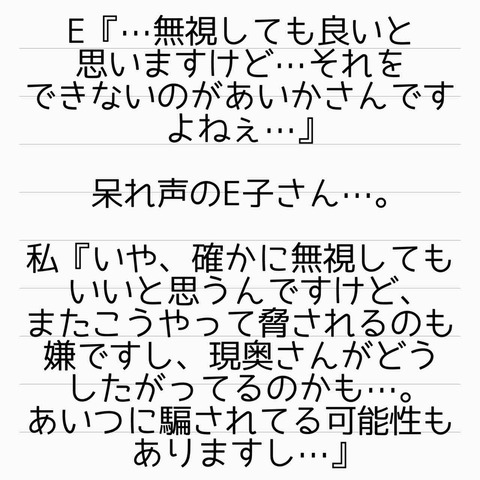 E『…無視しても良いと
思いますけど…それを
できないのがあいかさんです
よねぇ…』
呆れ声のE子さん…。
私『いや、確かに無視しても
いいと思うんですけど、
またこうやって脅されるのも
嫌ですし、現奥さんがどう
したがってるのかも…。
あいつに騙されてる可能性も
ありますし…』